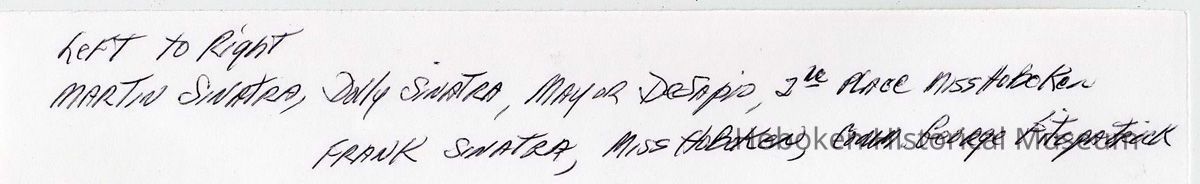 Left to Right
MARTIN SINATRA, Dolly SINATRA, MAYOR DeSapio, 2nd PLACE Miss Hoboken
FRANK SINATRA, Miss Hoboken, Comm. George Fitzpatrick
Hoboken Historical Museum